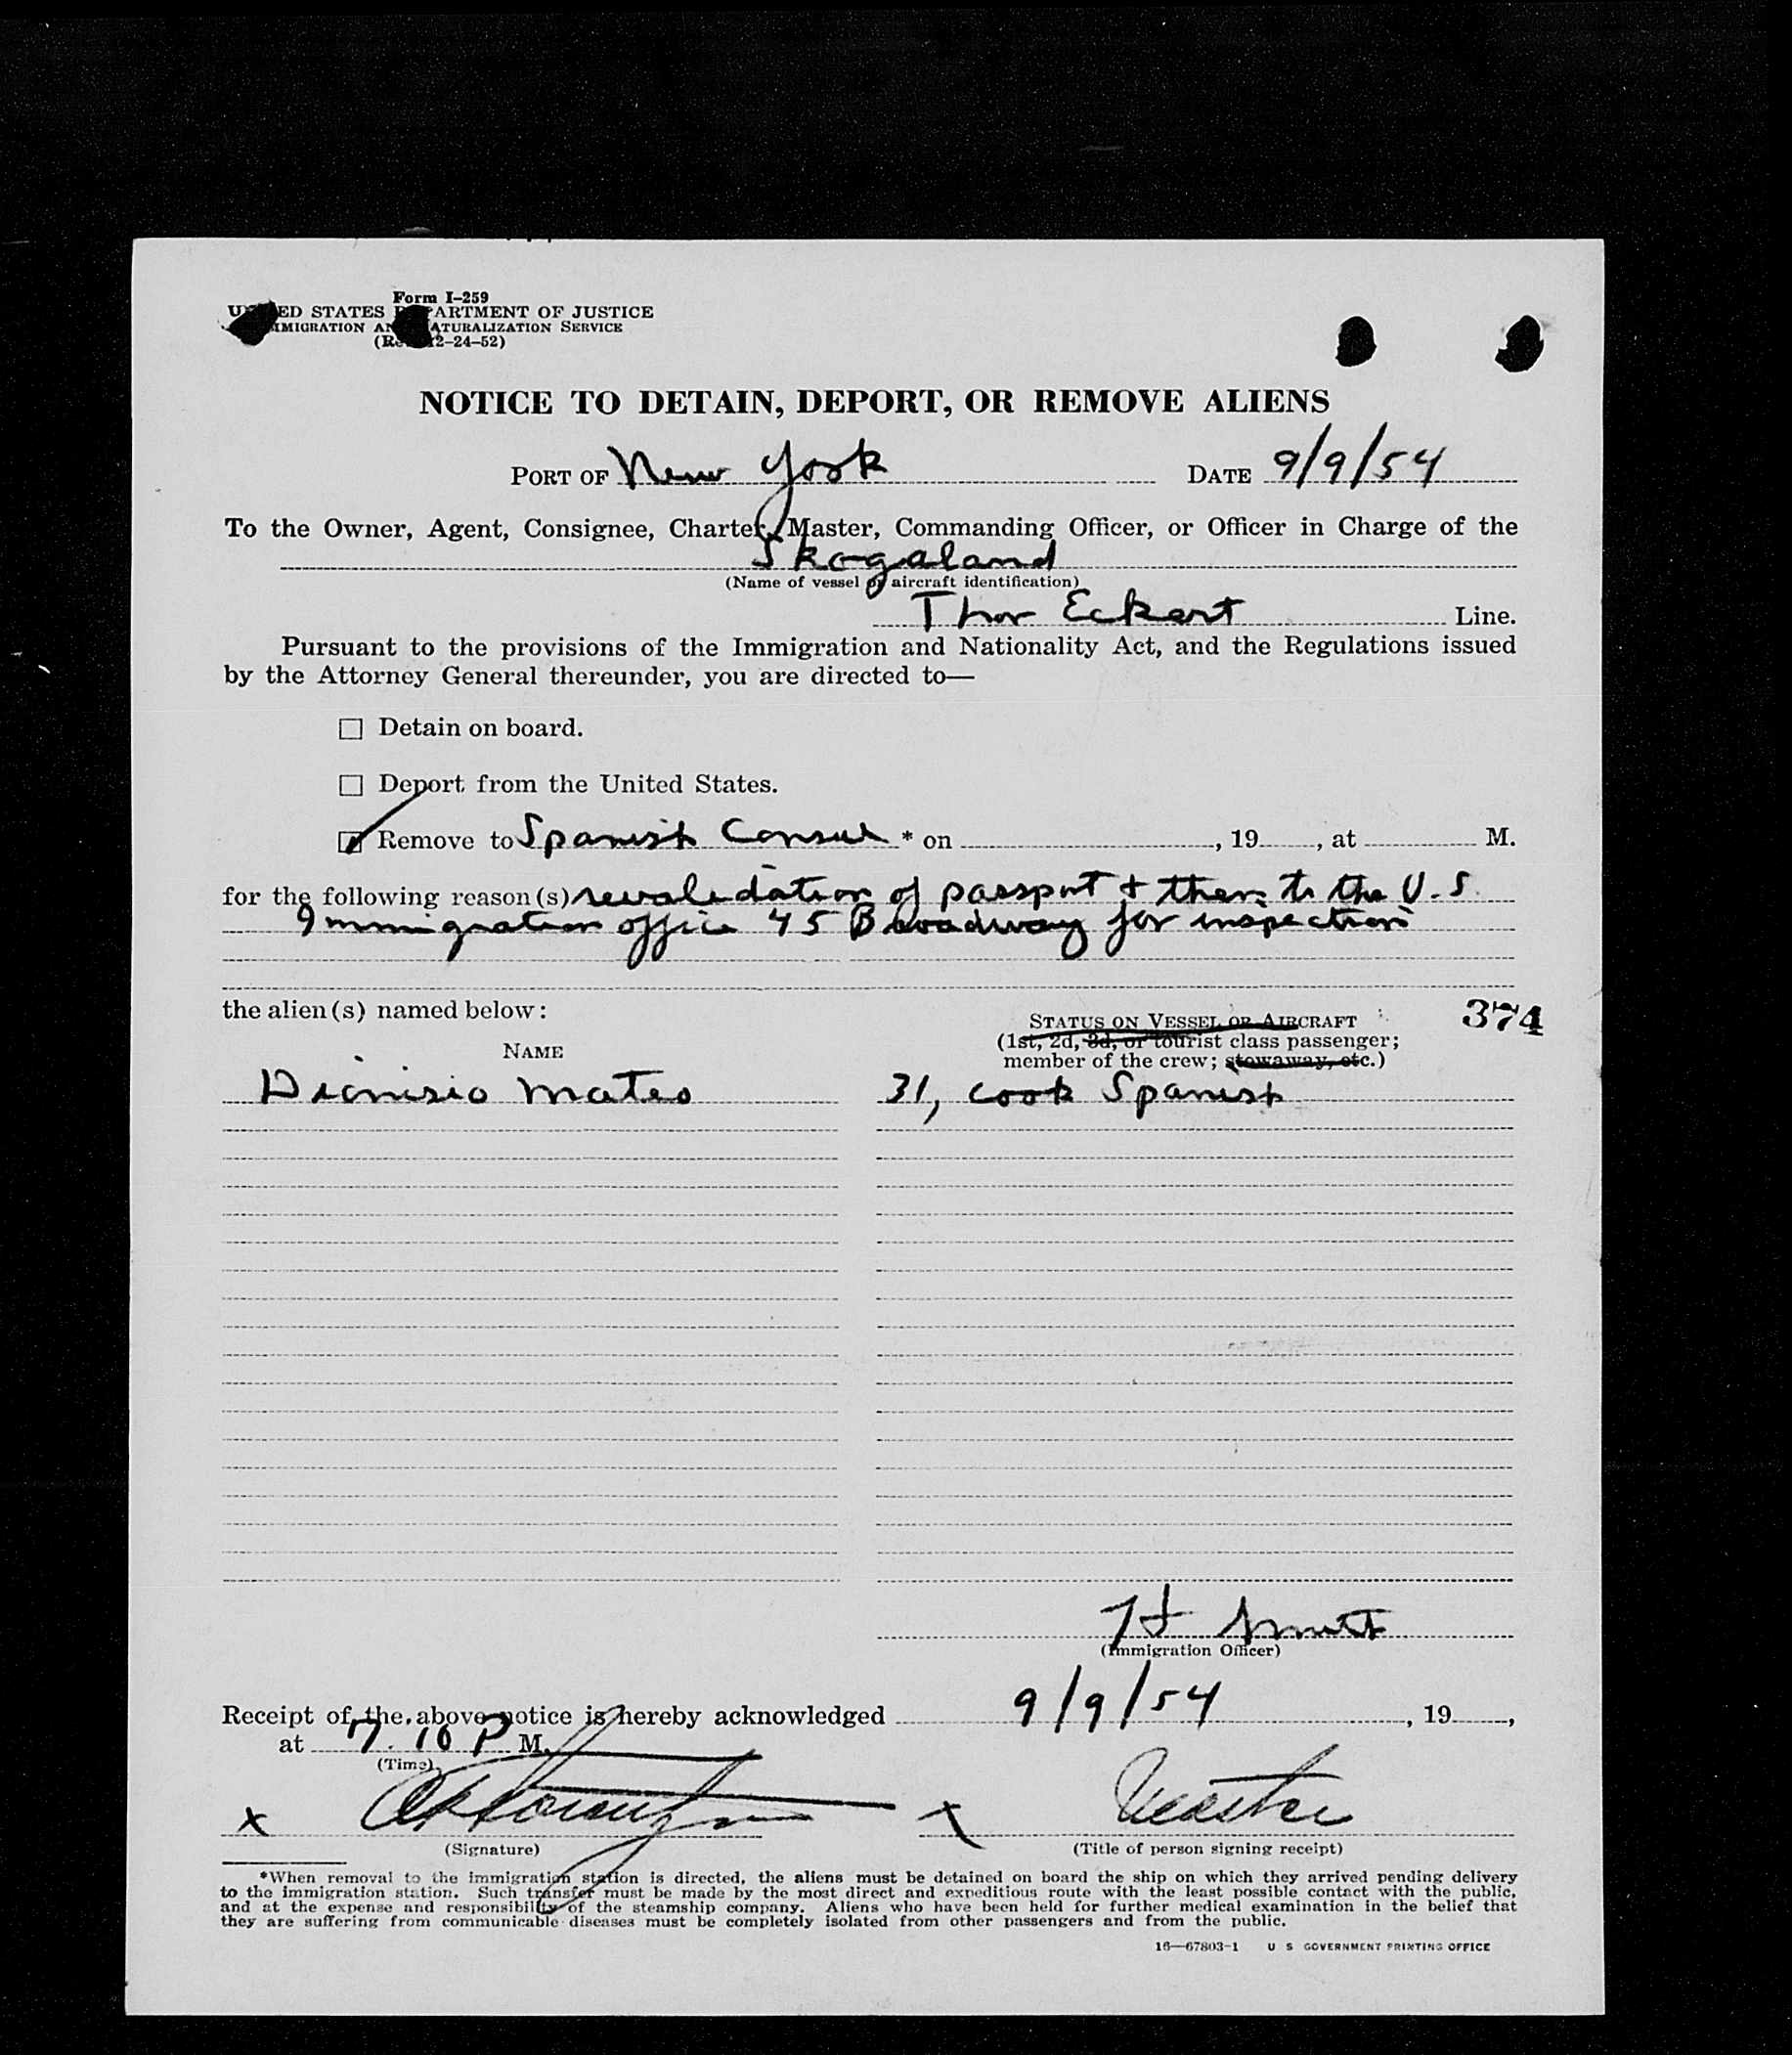 Form I-259
UNITED STATES DEPARTMENT OF JUSTICE
IMMIGRATION AND NATURALIZATION SERVICE
(Rev. 12-24-52)
NOTICE TO DETAIN, DEPORT, OR REMOVE ALIENS
PORT OF New York DATE 9/9/54
To the Owner, Agent, Consignee, Charter, Master, Commanding Officer, or Officer in Charge of the
Skogaland
(Name of vessel or aircraft identification)
Thor Eckert Line.
Pursuant to the provisions of the Immigration and Nationality Act, and the Regulations issued
by the Attorney General thereunder, you are directed to—
☐ Detain on board.
☐ Deport from the United States.
☑ Remove to Spanish Consul * on , 19 , at M.
for the following reason(s) revalidation of passport + then to the U.S.
Immigration office 45 Broadway for inspection
the alien(s) named below:
374
STATUS ON VESSEL OR AIRCRAFT
(1st, 2d, 3d, or tourist class passenger;
member of the crew; stowaway, etc.)
NAME
Dionisio Mateo 31, cook Spanish
(Immigration Officer)
Receipt of the above notice is hereby acknowledged 9/9/54 , 19 ,
at 7.10 P M.
(Time)
x x
(Signature) (Title of person signing receipt)
*When removal to the immigration station is directed, the aliens must be detained on board the ship on which they arrived pending delivery
to the immigration station. Such transfer must be made by the most direct and expeditious route with the least possible contact with the public,
and at the expense and responsibility of the steamship company. Aliens who have been held for further medical examination in the belief that
they are suffering from communicable diseases must be completely isolated from other passengers and from the public.
16—67803-1 U S GOVERNMENT PRINTING OFFICE